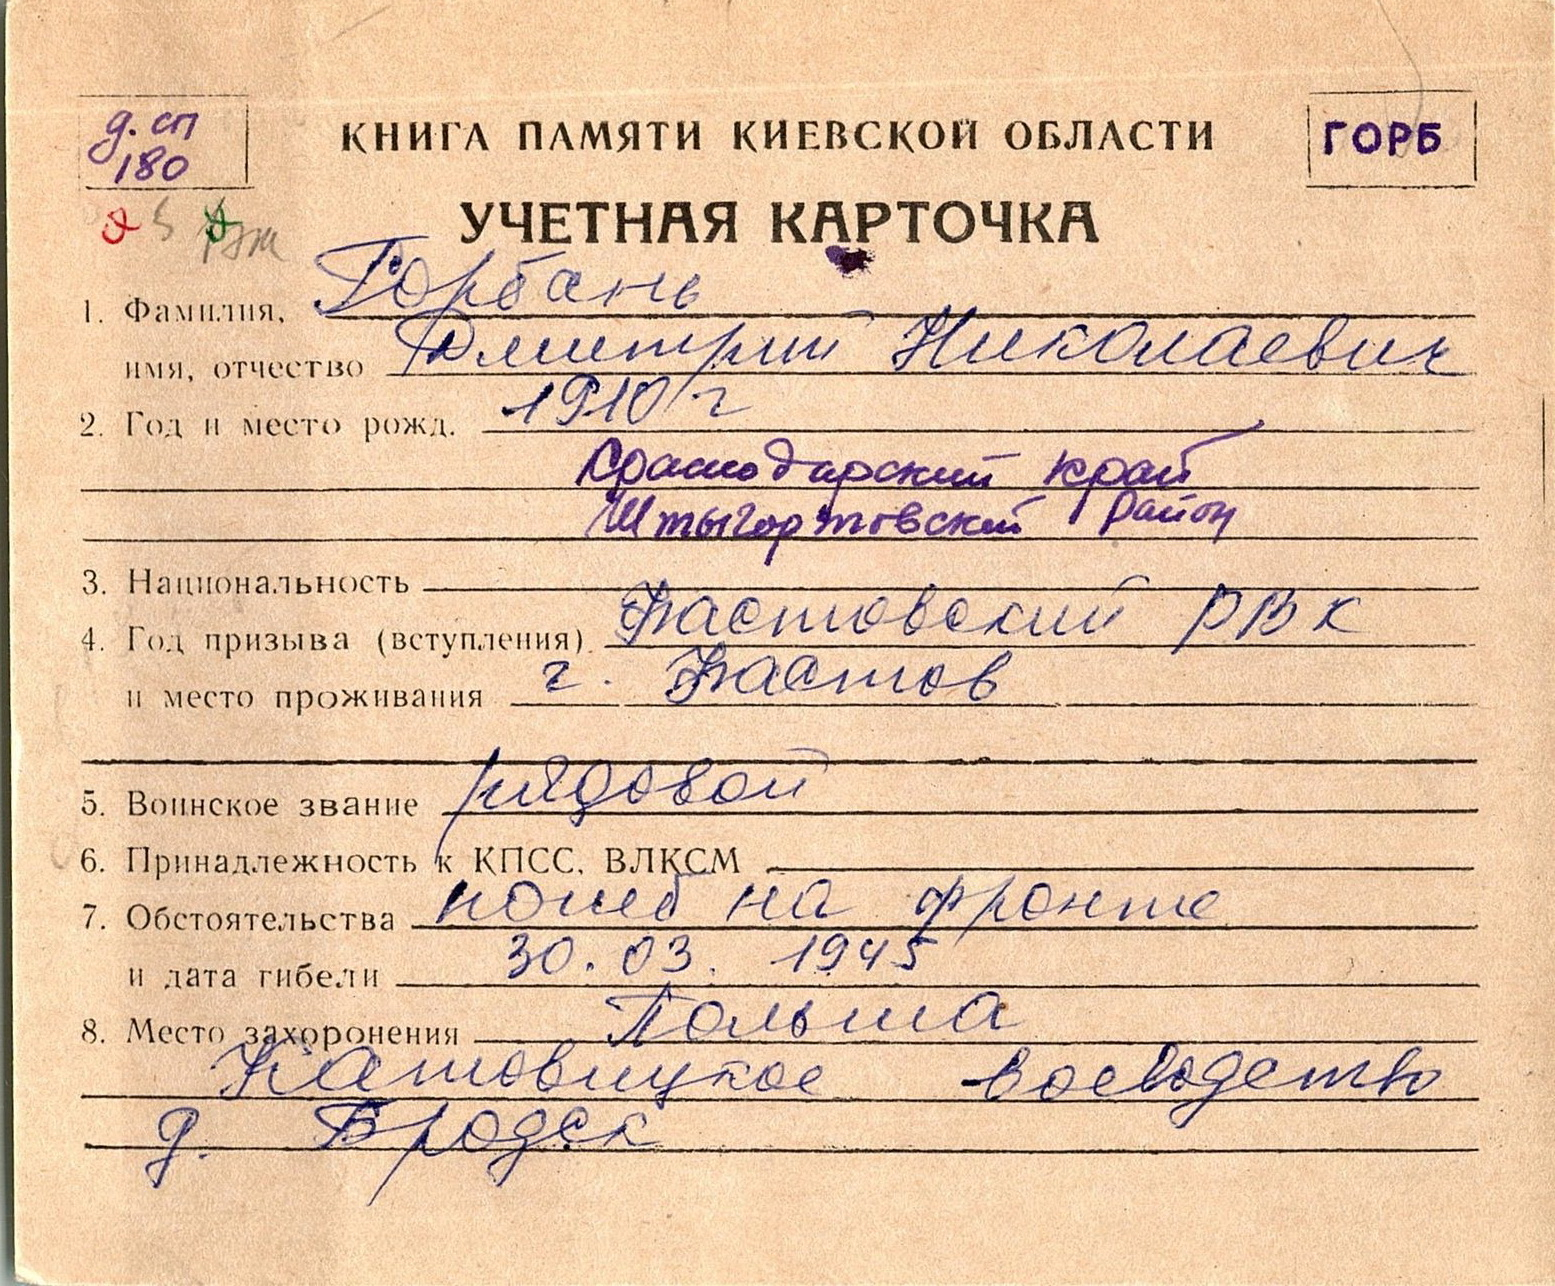 д. сп
180
КНИГА ПАМЯТИ КИЕВСКОЙ ОБЛАСТИ
ГОРБ
УЧЕТНАЯ КАРТОЧКА
1. Фамилия, Горбань
имя, отчество Дмитрий Николаевич
2. Год и место рожд. 1910 г
Краснодарский край
Штыгортовский район
3. Национальность
4. Год призыва (вступления) Фастовский РВК
и место проживания г. Фастов
5. Воинское звание рядовой
6. Принадлежность к КПСС, ВЛКСМ
7. Обстоятельства погиб на фронте
и дата гибели 30.03.1945
8. Место захоронения Польша
Катовицкое воеводство
д. Бродек